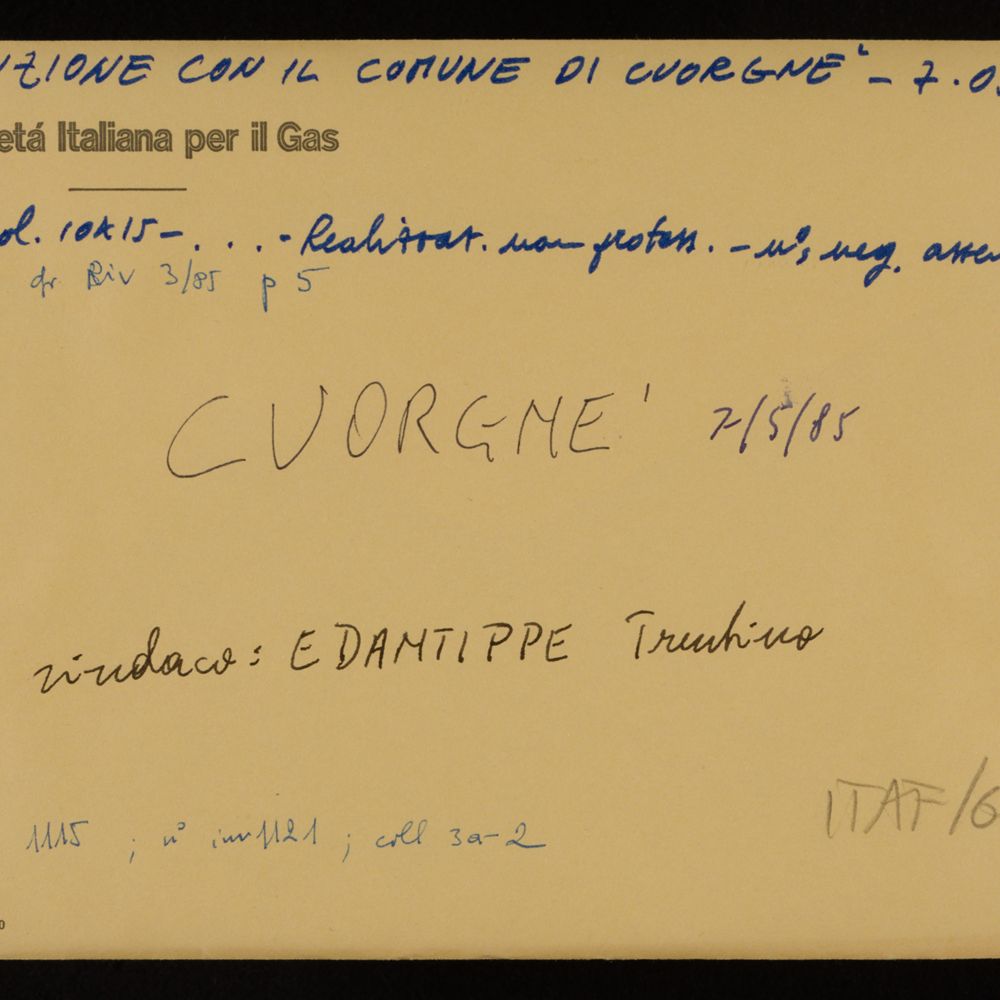 NZIONE CON IL COMUNE DI CUORGNE' - 7.05
età Italiana per il Gas
ol. 10x15 - . . . - Realizzat. non profess. - n°, neg. assen
cfr Riv 3/85 p 5
CUORGNE' 7/5/85
sindaco: EDANTIPPE Trentino
1115 ; n° inv 1121 ; coll 3a-2
ITAF/6
0